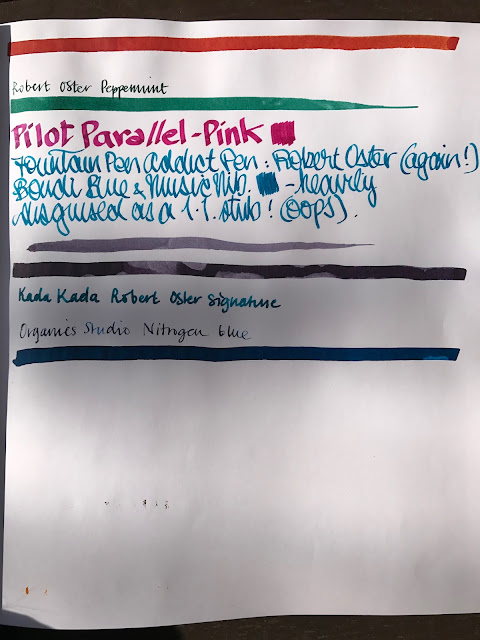 Robert Oster Peppermint
Pilot Parallel-Pink
Fountain Pen Addict Pen: Robert Oster (again!)
Bondi Blue & Music Nib. - heavily
disguised as a 1.1. stub! (oops).
Kada Kada Robert Oster Signature
Organics Studio Nitrogen blue